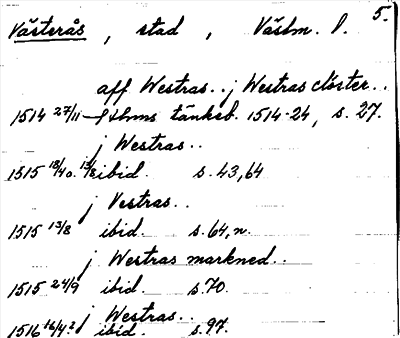 5.
Västerås, stad, Västm. l.
aff Westras.. j Westras clöster..
1514 27/11 Sthms tänkeb. 1514-24, s. 27.
j Westras..
1515 18/40. 13/8 ibid. s. 43, 64
j Vestras..
1515 13/8 ibid. s. 64, n.
j Westras markned..
1515 24/9 ibid. s. 70.
j Westras..
1516 16/4.2 ibid. s. 97.